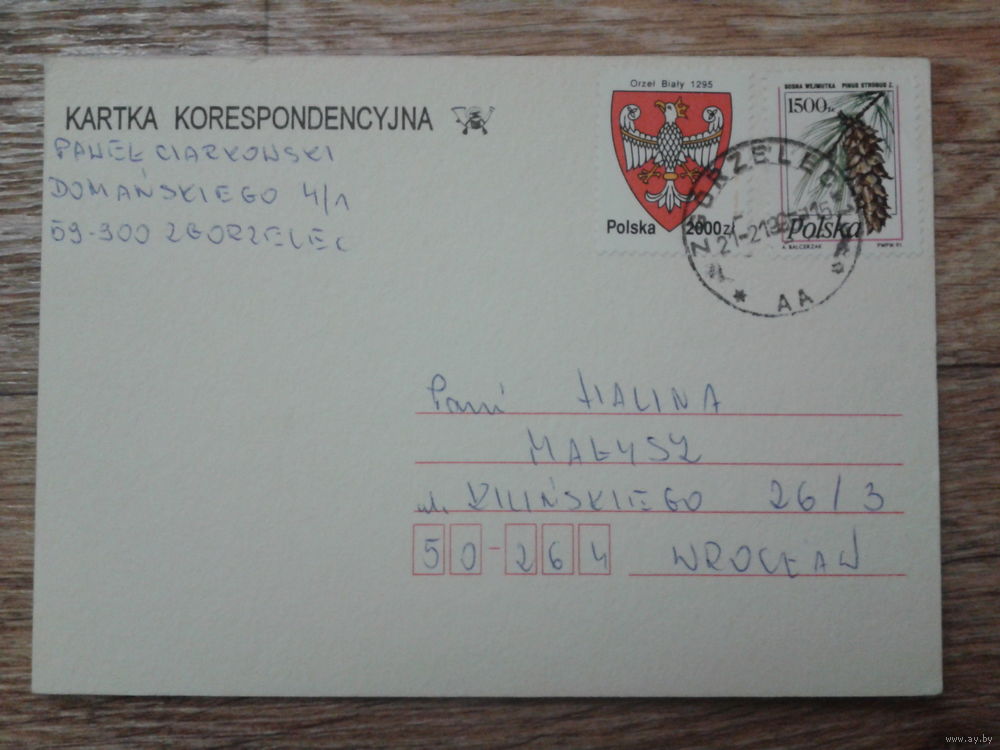 KARTKA KORESPONDENCYJNA
PAWEŁ CIARKOWSKI
DOMAŃSKIEGO 4/1
59-900 ZGORZELEC
Orzeł Biały 1295
Polska 2000zł
SOSNA WEJMUTKA PINUS STROBUS Z.
1500zł
Polska
A. BALCERZAK PWPW 93
ZGORZELEC
AA
Pani HALINA
MAŁYSZ
ul. KILIŃSKIEGO 26/3
50-264 WROCŁAW
www.ay.by